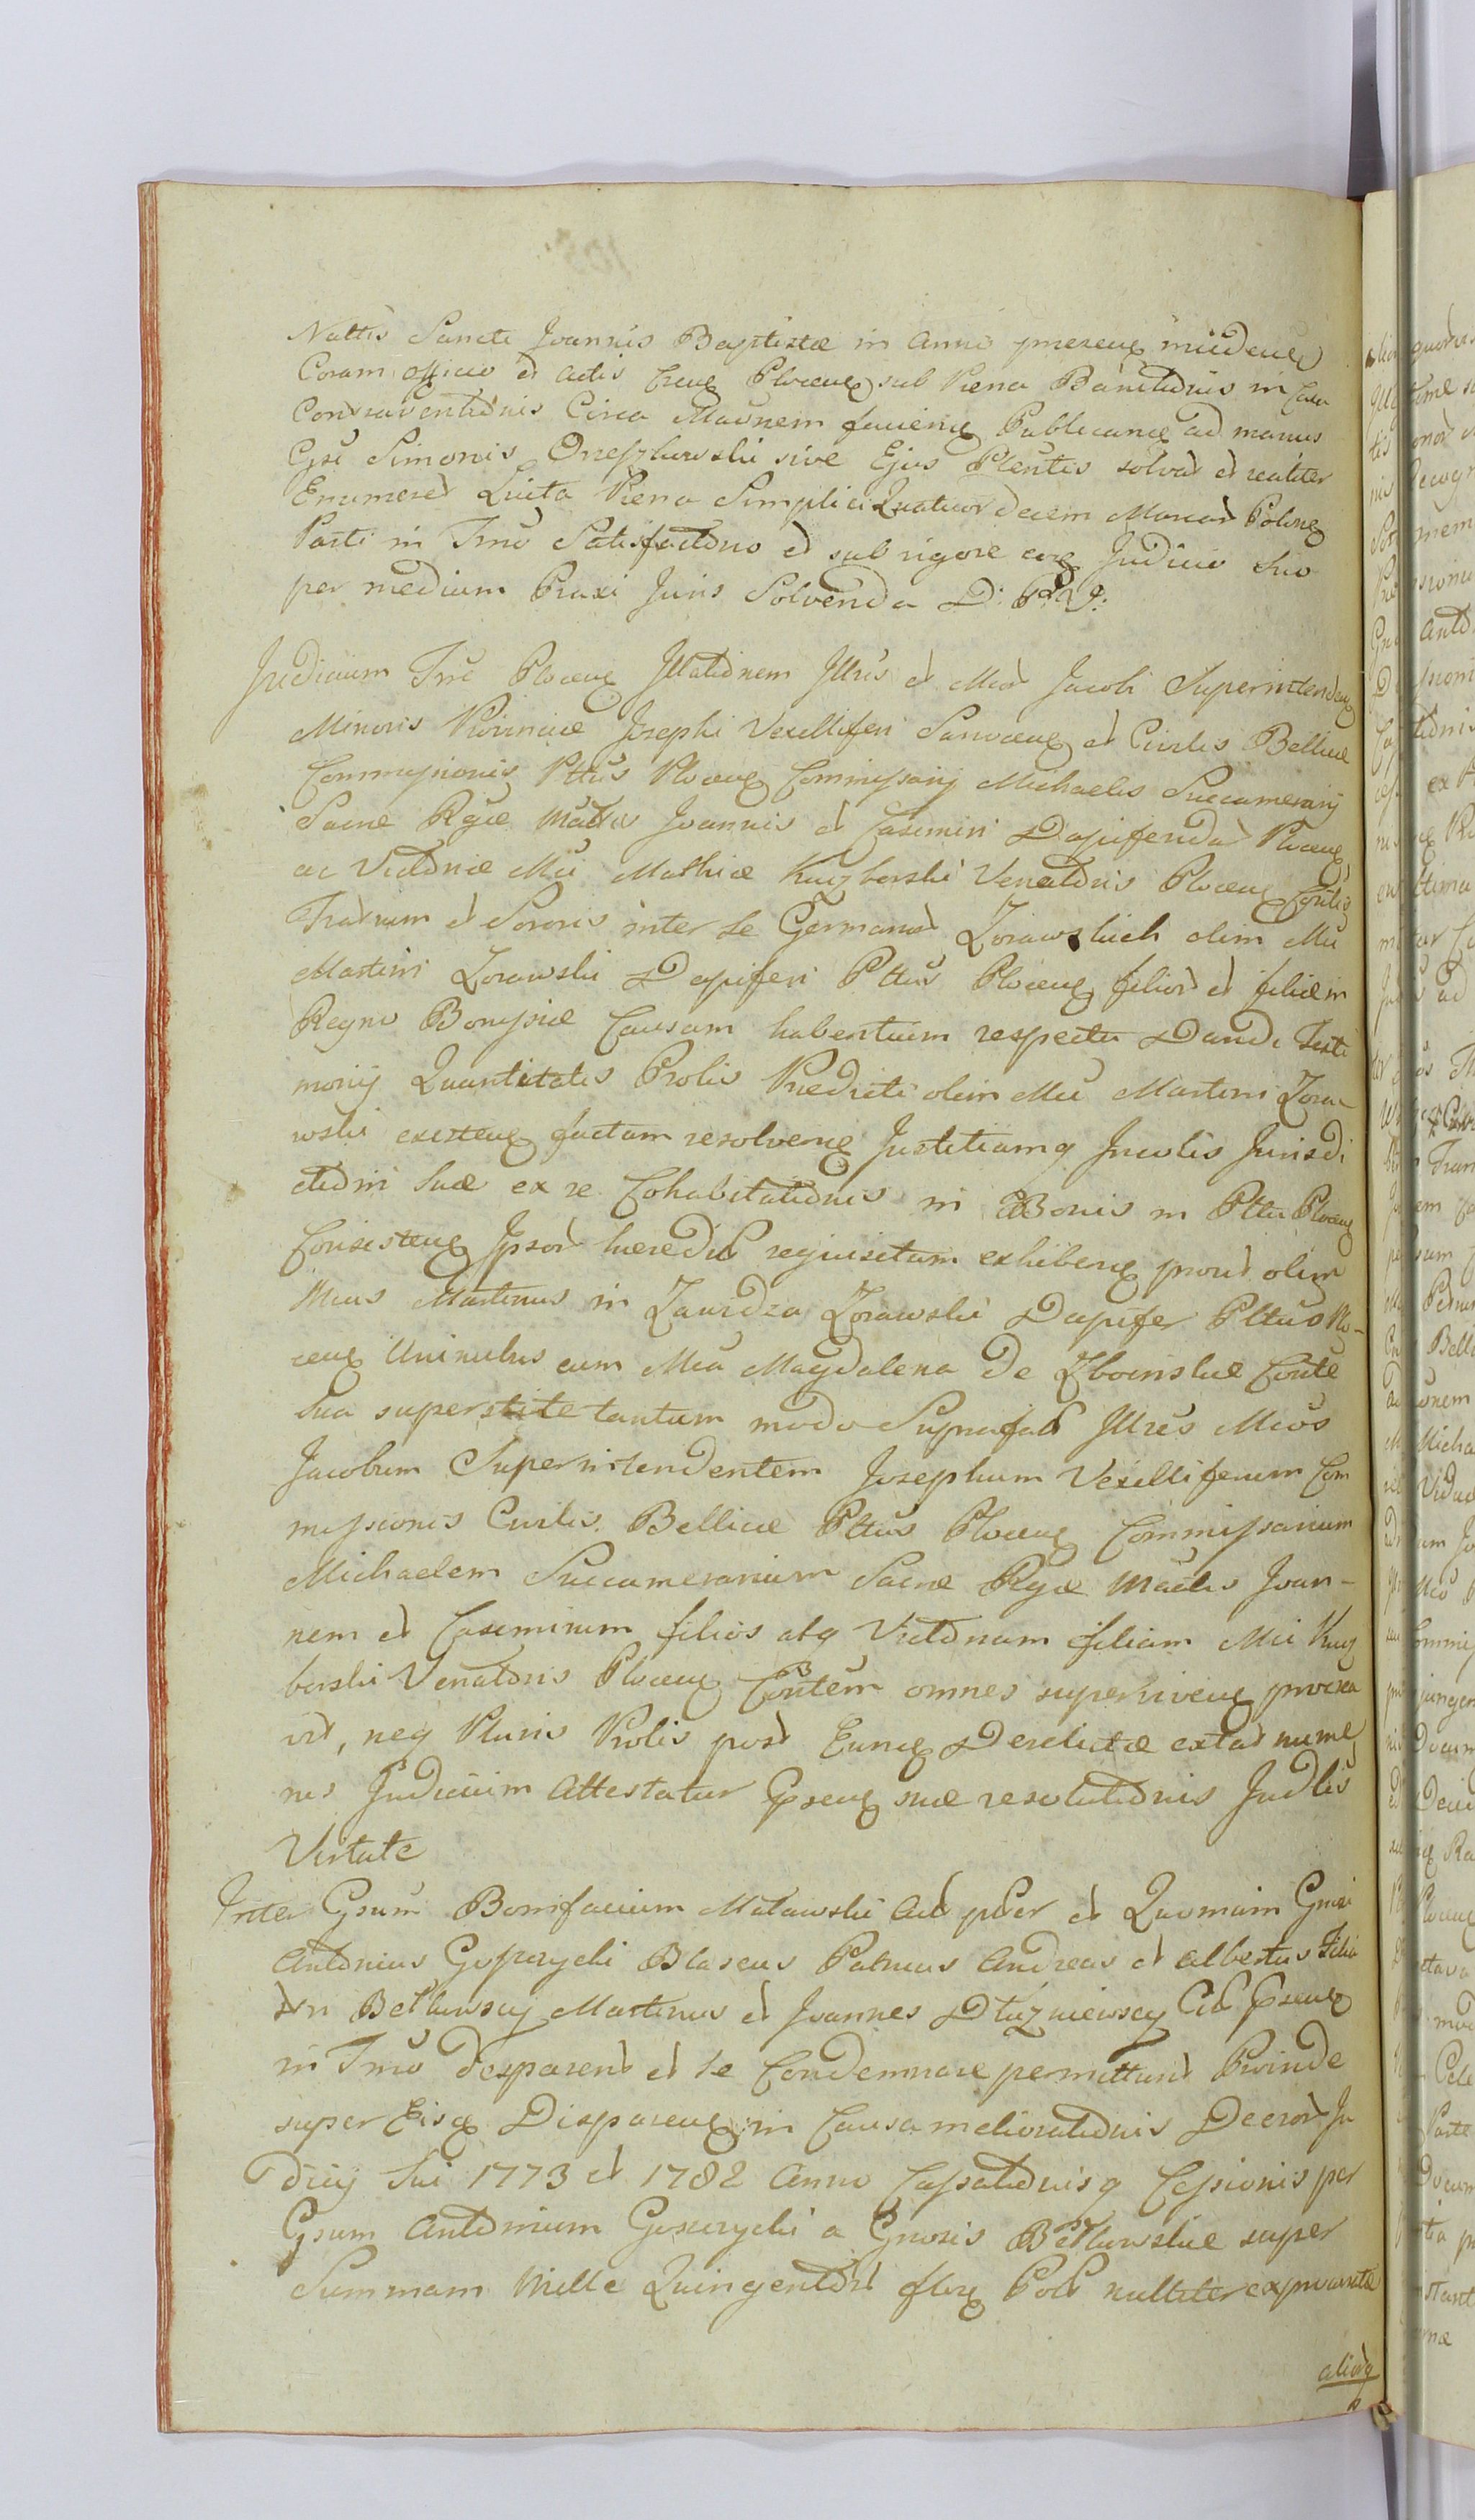 Nattis Sancti Joannis Baptistæ in Anno presenq incidenq
Coram officio et Actis Crenq Plocenq sub Pœna Banitionis in Casu
Contraventionis Circa Manuem facienq Publicanq ad manus
Gsi Simonis Orzeszkowski sive Ejus Plentis solvat et realiter
Enumeret Luita Pœna Simplici Quatuordecim Marcar Polonq
Parti in Tmo Satisfactono et sub rigore eoq Judicio suo
per medium Praxi Juris Solvenda D. P. V.
Judicium Tne Plocenq Illationem Illris et Mcor Jacobi Superintendenq
Minoris Provinciæ Josephi Vexilliferi Sanocenq et Civilis Bellicæ
Commissionis Pttus Plocenq Commissarij Michaelis Succamerarij
Sacræ Rgiæ Mattis Joannis et Casimiri Dapiferidar Plocenq
ac Victoriæ Mci Mathiæ Kuczborski Venatoris Plocenq Contis
Fratrum et Sororis inter se Germanor Zorawskich olim Mci
Martini Zorawski Dapiferi Pttus Plocenq filior et filiæ in
Regno Borussiæ Causam habentium respectu Dandi Testi
monij Quantitatis Prolis Prædicti olim Mci Martini Zora-
wski existenq factam resolvenq Justitiamq Incolis Jurisdi
ctioni suæ ex re Cohabitationis in Bonis in Pttu Plocenq
Consistenq Ipsor hæredit requisitam exhibenq prout olim
Mcus Martinus in Zawidza Zorawski Dapifer Pttus Plo-
cenq Uninubus cum Mca Magdalena De Zboinskie Conte
sua superstite tantum modo Suprafat Illres Mcos
Jacobum Superintendentem Josephum Vexilliferum Com
missionis Civilis Bellicæ Pttus Plocenq Commissarium
Michaelem Succamerarium Sacræ Rgiæ Mattis Joan-
nem et Casimirum filios atq Victoriam filiam Mci Kucz
borski Venatoris Plocenq Contem omnes supervivenq procrea
vit, neq Pluris Prolis post Eumq Derelictæ extat nume
rus Judicium Attestatur Pseuq suæ resolutionis Judlis
Virtute
Inter Gsum Bonifacium Matawski Act et Quoniam Gnosi
Antonius Gosczycki Blasius Palmus Andreas et Albertus
Betkowscy Martinus et Joannes Dłuzniewscy Citt Psenq
in Tmo desparent et se Condemnare permittunt Proinde
super Eisq Disparenq in Causa meliorationis Decror Ju
dicij sui 1773 et 1782 Anno Cassationisq Cessionis per
Gsum Antonium Gosczycki a Gnosis Betkowskie super
Summam Mille Quingentor florq Pol nulliter expwarate
aliorq